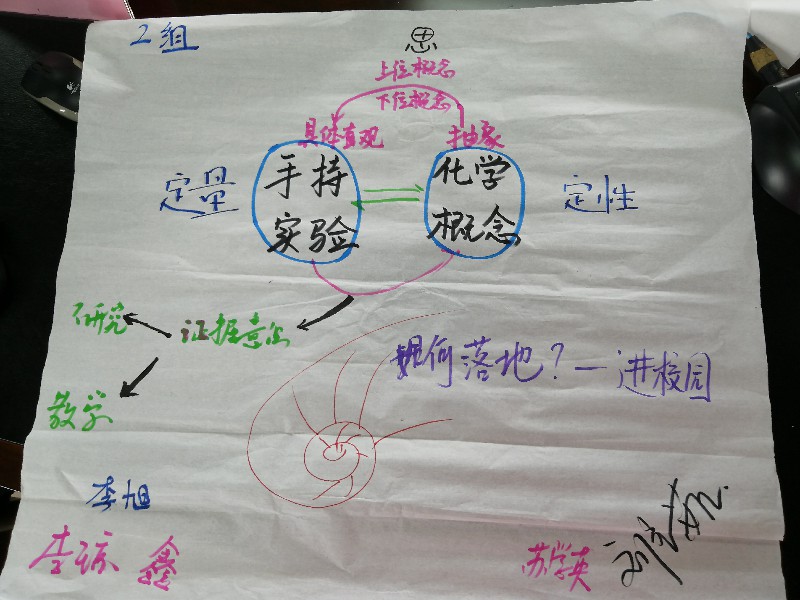 2组
思
上位概念
下位概念
具体直观
抽象
定量
手持
实验
化学
概念
定性
研究
证据意识
教学
如何落地？—进校园
李旭
李琼
鑫
苏学英